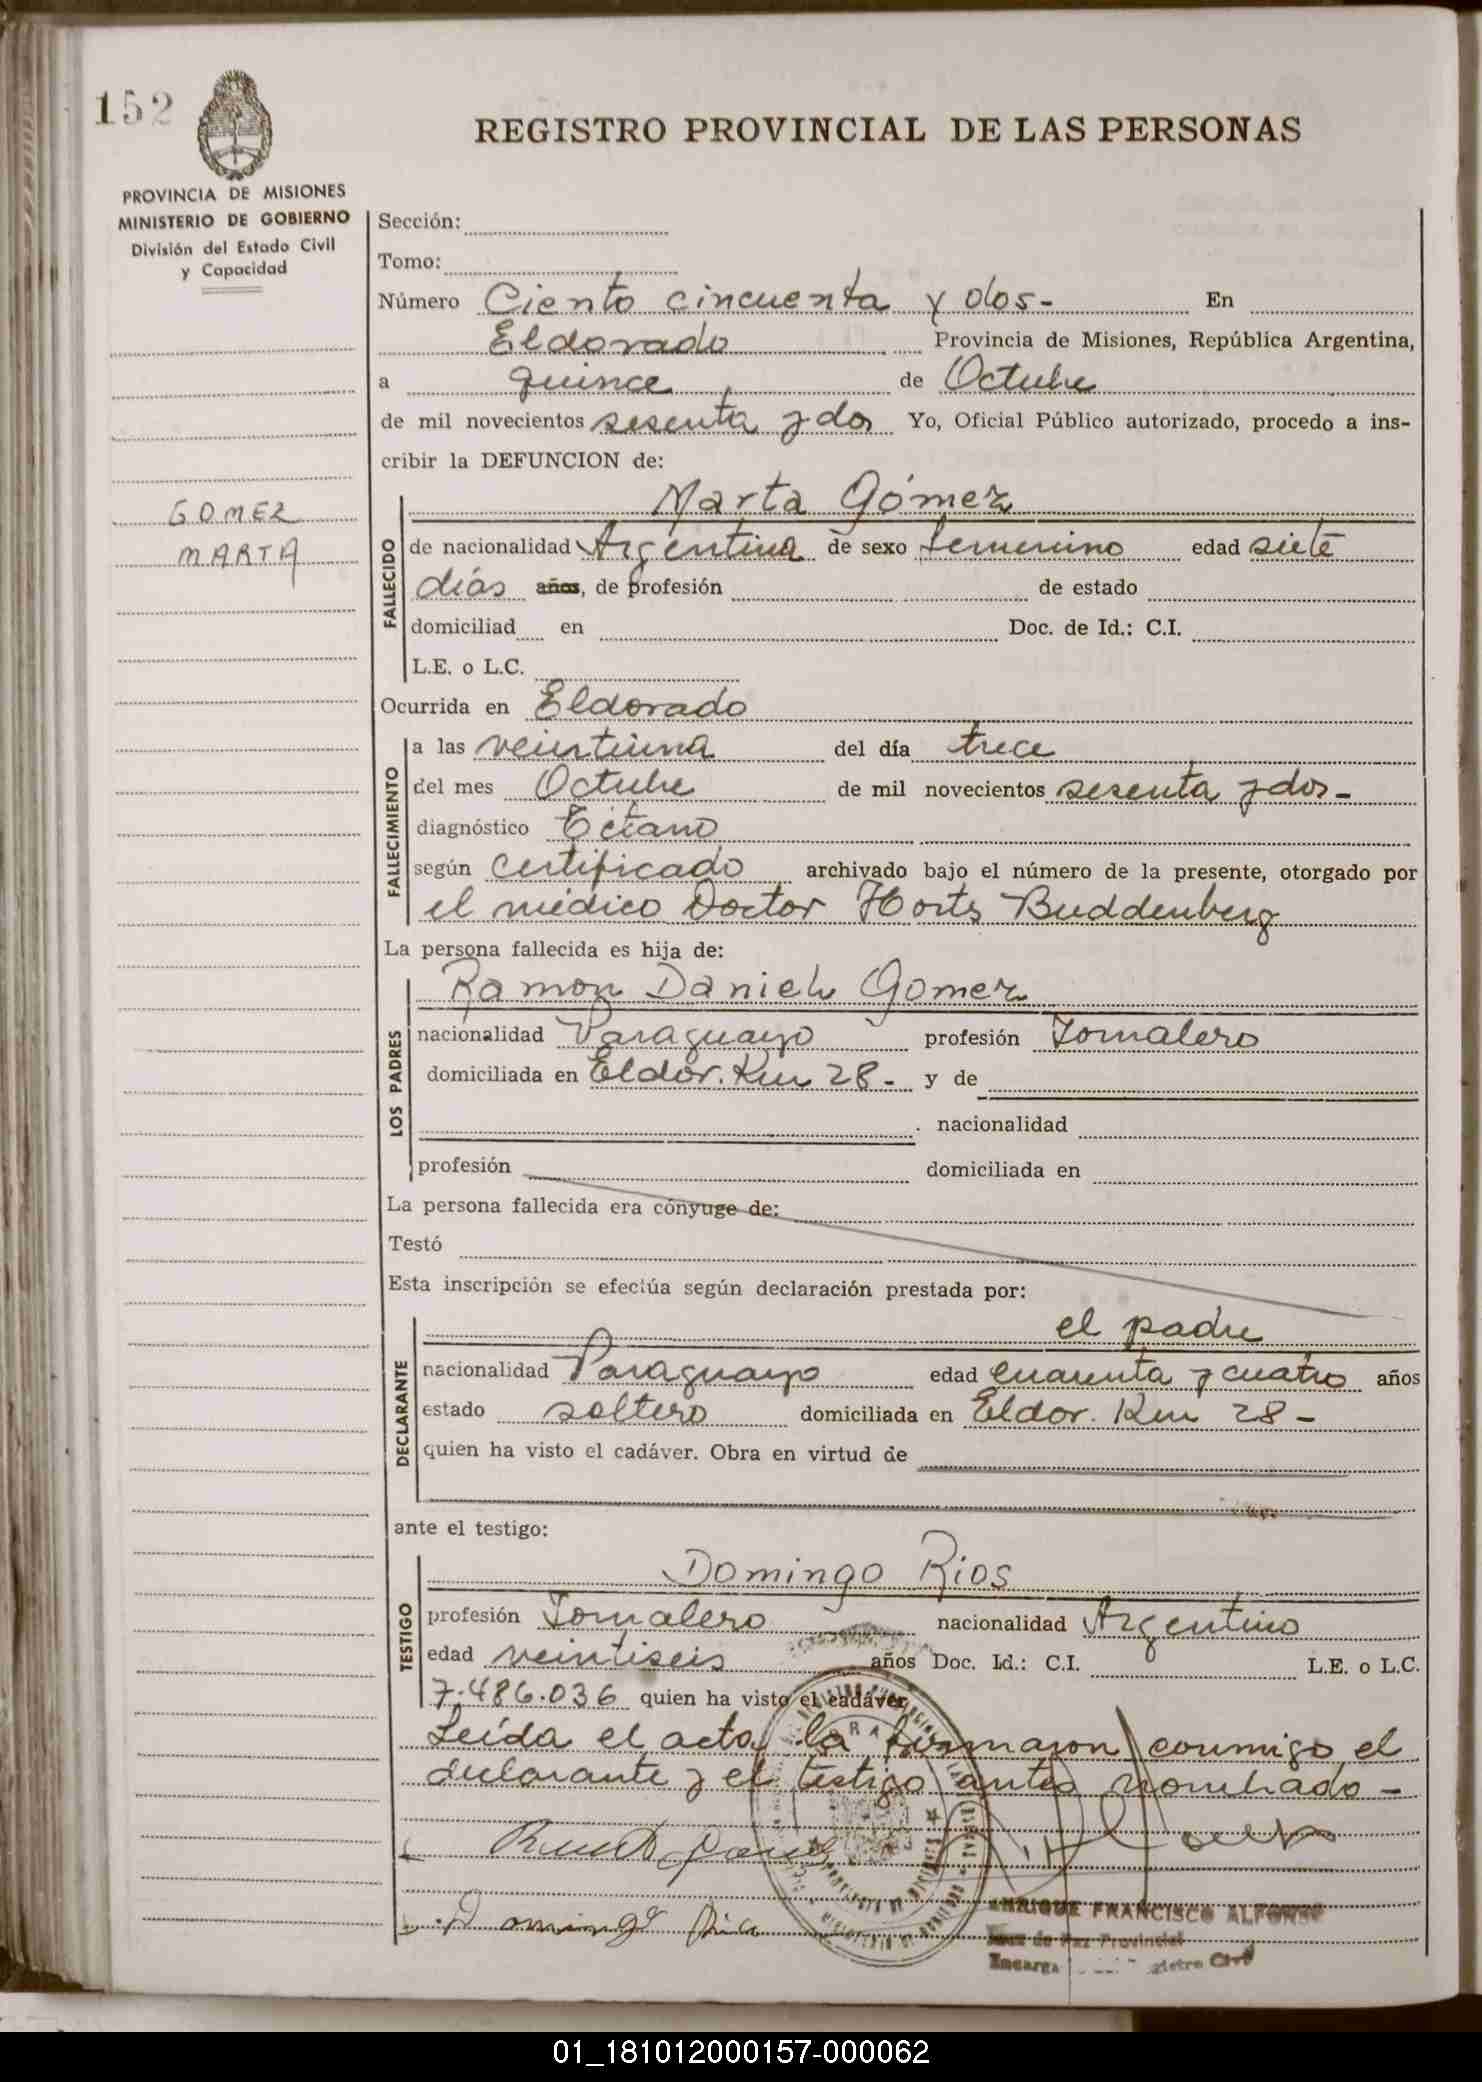 152
REGISTRO PROVINCIAL DE LAS PERSONAS
PROVINCIA DE MISIONES
MINISTERIO DE GOBIERNO
División del Estado Civil
y Capacidad
GOMEZ
MARTA
Sección:
Tomo:
Número Ciento cincuenta y dos- En
Eldorado Provincia de Misiones, República Argentina,
a quince de Octubre
de mil novecientos sesenta y dos Yo, Oficial Público autorizado, procedo a ins-
cribir la DEFUNCION de:
FALLECIDO
Marta Gómez
de nacionalidad Argentina de sexo femenino edad siete
días años, de profesión de estado
domiciliad en Doc. de Id.: C.I.
L.E. o L.C.
Ocurrida en Eldorado
FALLECIMIENTO
a las veintiuna del día trece
del mes Octubre de mil novecientos sesenta y dos-
diagnóstico Tétano
según certificado archivado bajo el número de la presente, otorgado por
el médico Doctor Horts Buddenberg
La persona fallecida es hija de:
LOS PADRES
Ramon Daniel Gomez
nacionalidad Paraguayo profesión Jornalero
domiciliada en Eldor. Km 28- y de
nacionalidad
profesión domiciliada en
La persona fallecida era cónyuge de:
Testó
Esta inscripción se efectúa según declaración prestada por:
DECLARANTE
el padre
nacionalidad Paraguayo edad cuarenta y cuatro años
estado soltero domiciliada en Eldor. Km 28-
quien ha visto el cadáver. Obra en virtud de
ante el testigo:
TESTIGO
Domingo Rios
profesión Jornalero nacionalidad Argentino
edad veintiseis años Doc. Id.: C.I. L.E. o L.C.
7.486.036 quien ha visto el cadáver
Leída el acta, la firmaron conmigo el
declarante y el testigo antes nombrado-
Domingo
ENRIQUE FRANCISCO ALFONSO
Juez de Paz Provincial
01_181012000157-000062